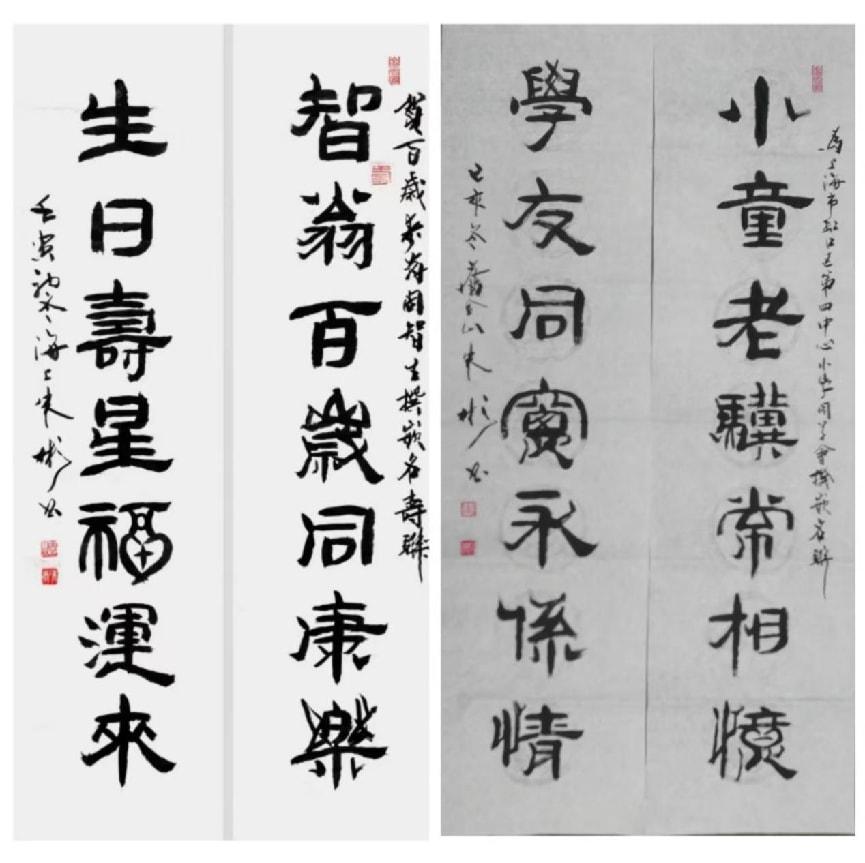 賀百歲周智生撰嵌名壽聯
智翁百歲同康樂
生日壽星福運來
壬寅初冬海上朱彬書
為上海市虹口區第四中心小學同學會撰嵌名聯
小童老驥常相憶
學友同窗永係情
己亥冬朱彬書